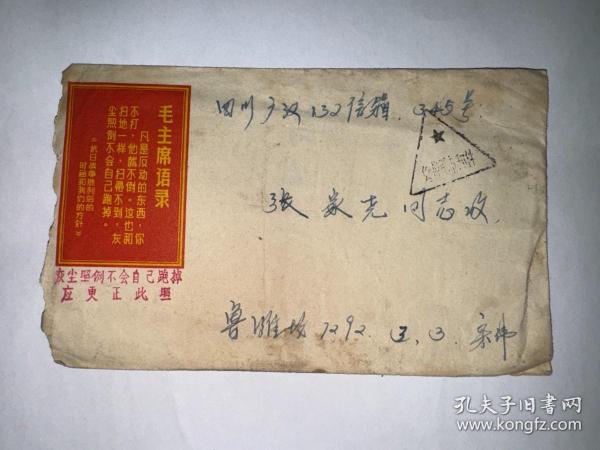 毛主席语录
凡是反动的东西，你
不打，他就不倒。这也和
扫地一样，扫帚不到，灰
尘照倒不会自己跑掉。
《抗日战争胜利后的
时局和我们的方针》
灰尘照例不会自己跑掉
应更正此照
四川广汉132信箱 345号
张家尧同志收
鲁潍坊7292. 2. 3.
孔夫子旧书网
www.kongfz.com